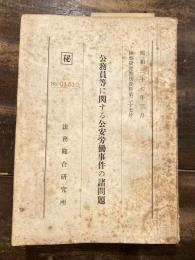 昭和三十六年三月
検察研究特別資料第二十七号
公務員等に関する公安労働事件の諸問題
秘
No.
法務総合研究所